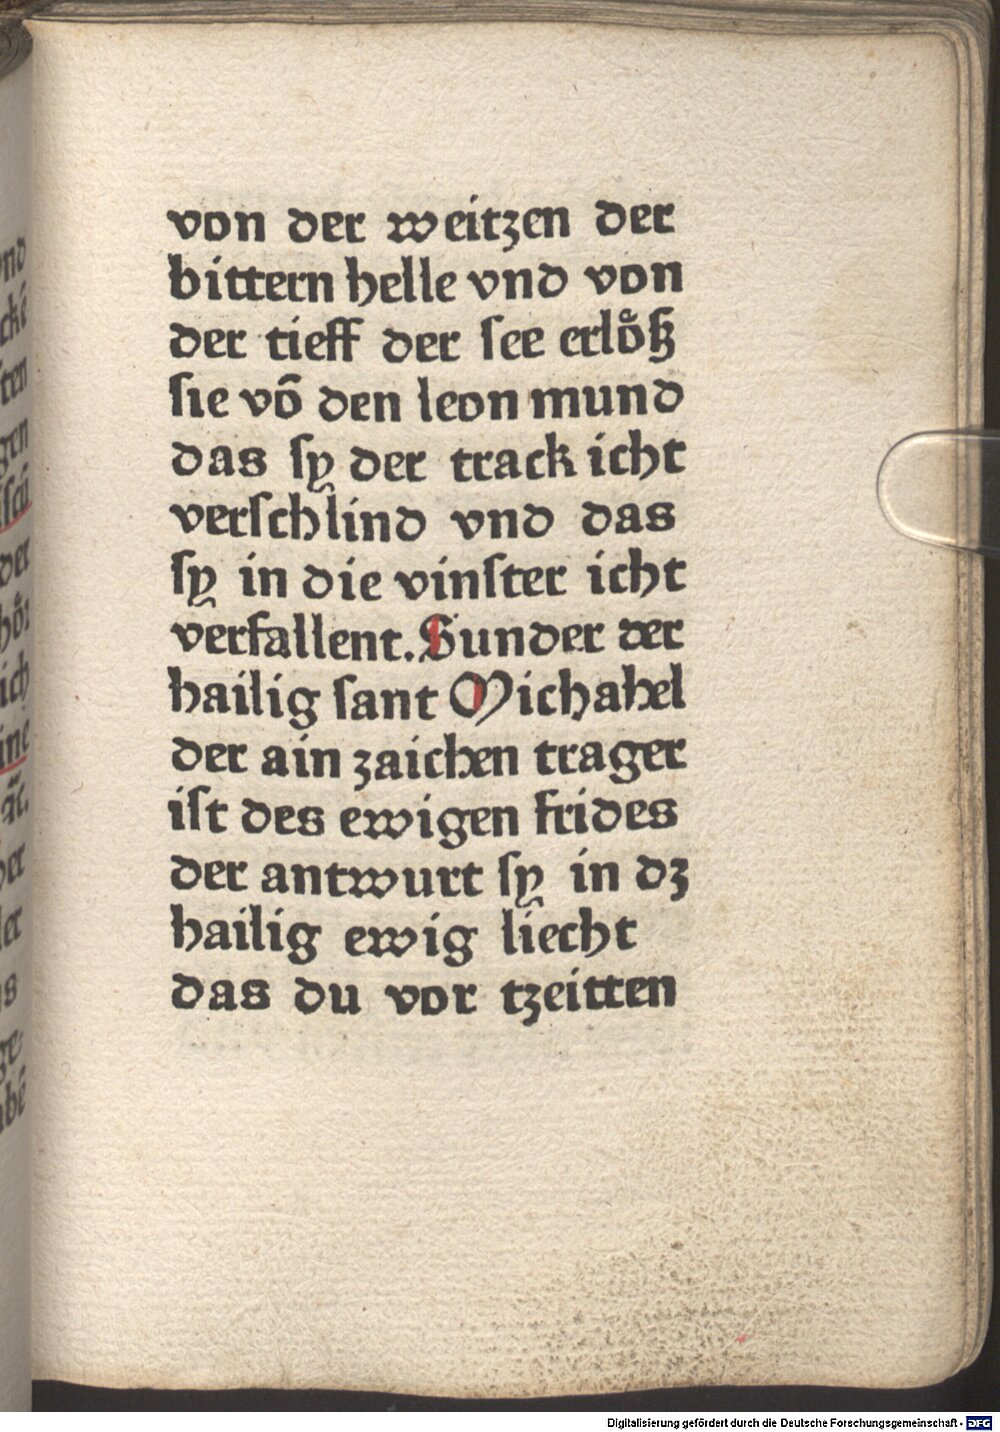 von der weitzen der
bittern helle vnd von
der tieff der ſee erloͤſz
ſie võ den leon mund
das ſy der track icht
verſchlind vnd das
ſy in die vinſter icht
verfallent. Sunder der
hailig ſant Michahel
der ain zaichen trager
iſt des ewigen frides
der antwurt ſy in dz
hailig ewig liecht
das du vor tzeitten
Digitalisierung gefördert durch die Deutsche Forschungsgemeinschaft - DFG